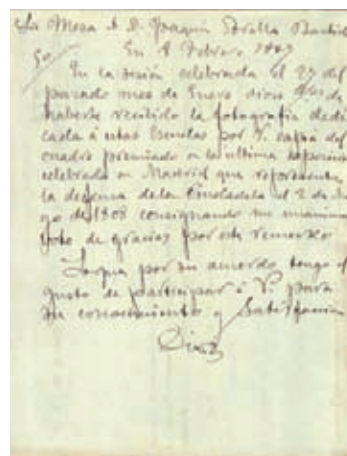 La Mesa á D. Joaquin Sorolla Bastida
En 8 Febrero 1887
En la sesión celebrada el 29 del
pasado mes de Enero dióse
haberse recibido la fotografía dedi
cada á estas Escuelas por V. copia del
cuadro premiado en la última exposición
celebrada en Madrid que representa
la defensa de la Ciudadela el 2 de
de 1808 consignando un unanime
voto de gracias por este
Lo que por su acuerdo tengo el
gusto de participar á V. para
su conocimiento y Satisfacción
Dios